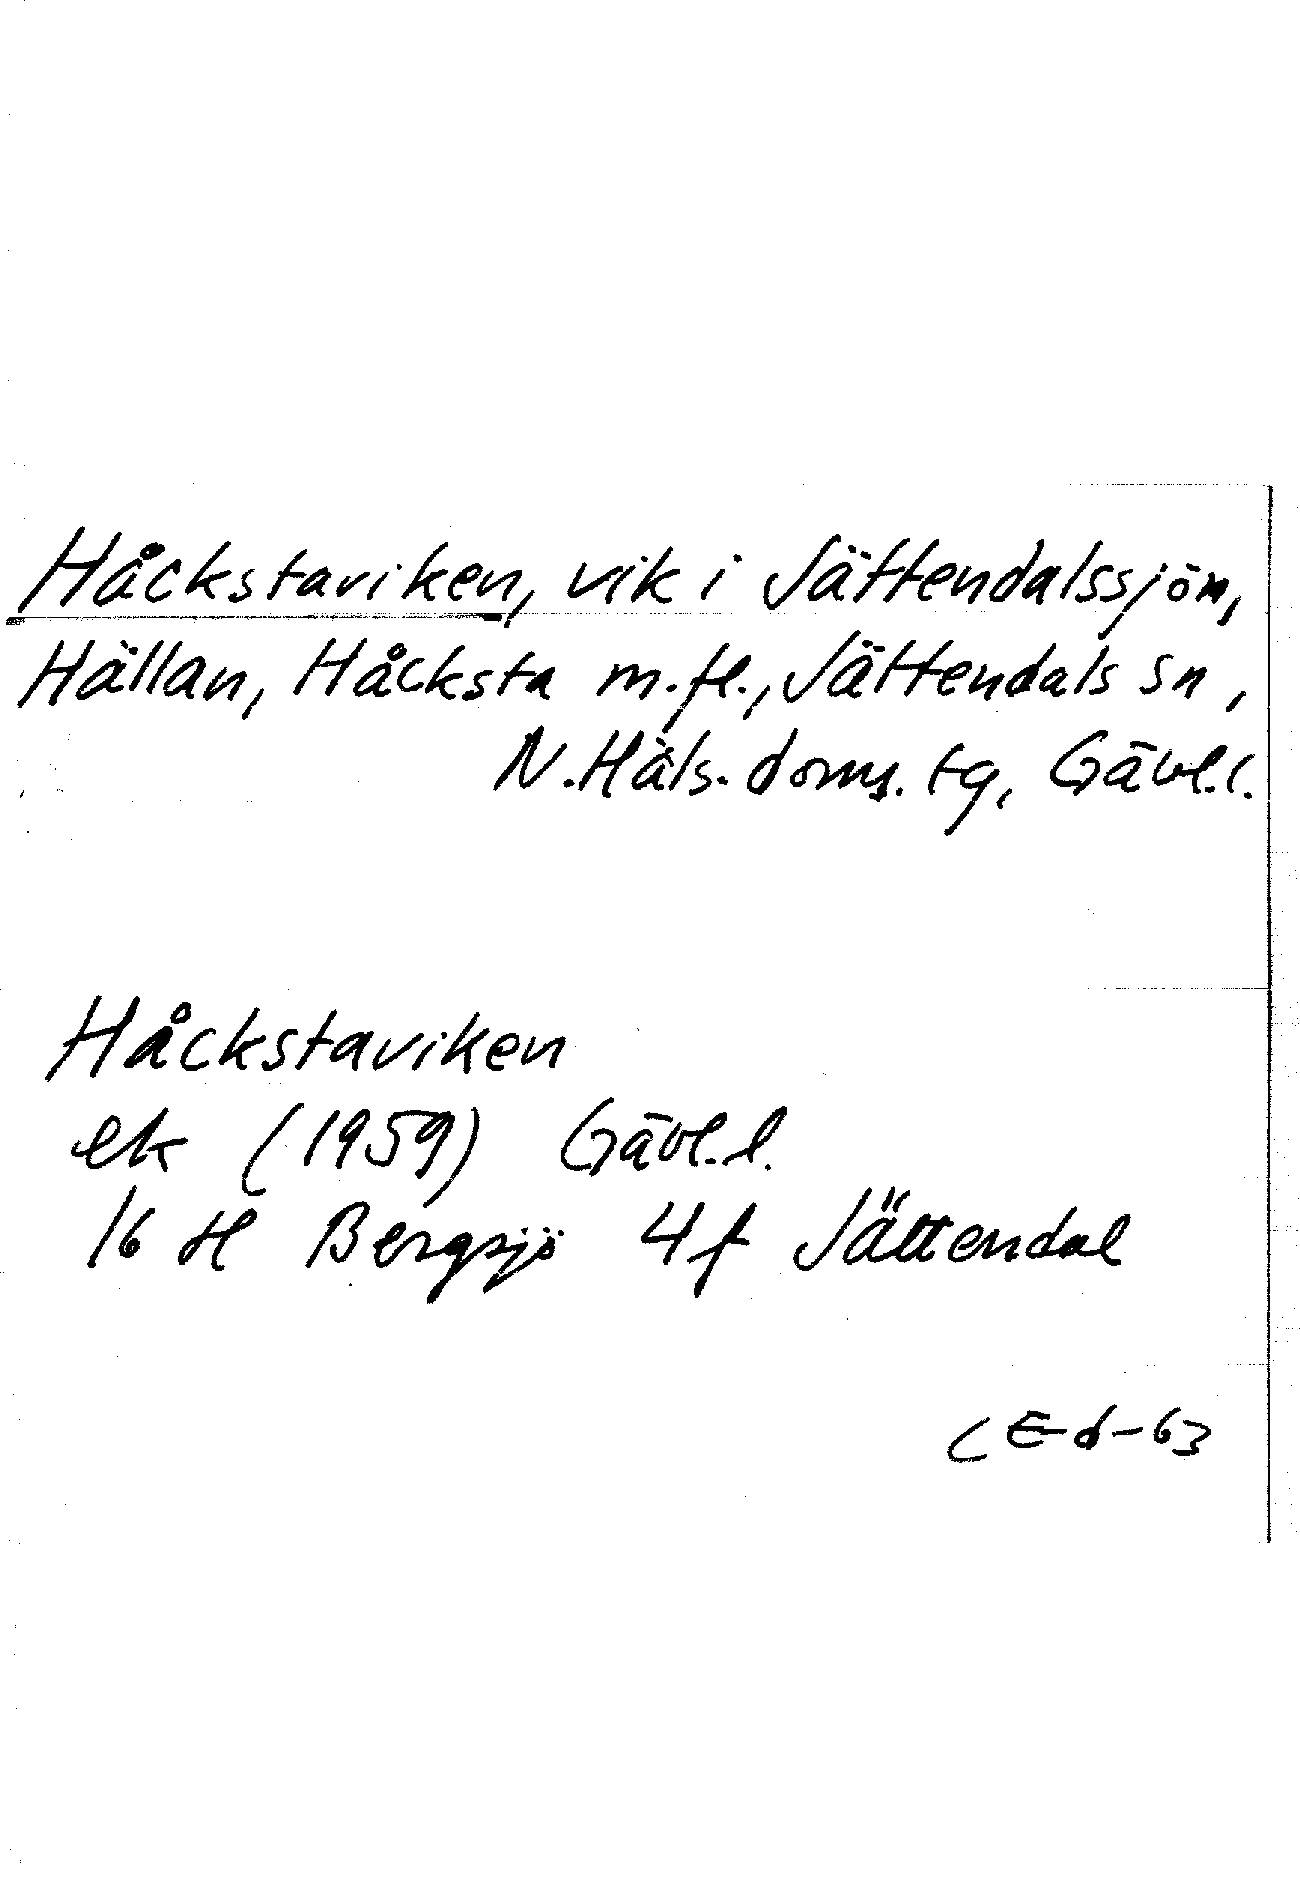 Håckstaviken, vik i Jättendalssjön,
Hällan, Håcksta m.fl., Jättendals sn,
N.Häls. doms. tg, Gävl.l.
Håckstaviken
ek (1959) Gävl.l.
16 H Bergsjö 4f Jättendal
CE-d-63